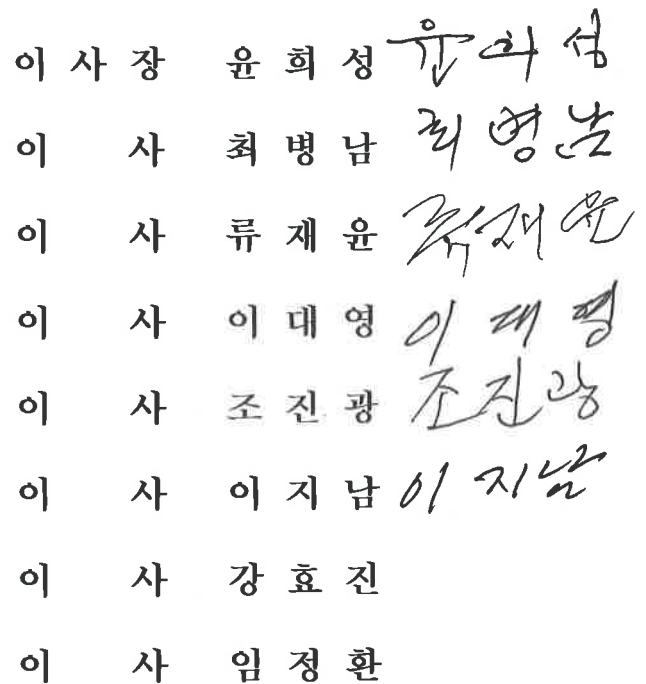 이 사 장 윤 희 성 윤 희 성
이 사 최 병 남 최 병 남
이 사 류 재 윤 류 재 윤
이 사 이 대 영 이 대 영
이 사 조 진 광 조 진 광
이 사 이 지 남 이 지 남
이 사 강 효 진
이 사 임 정 환